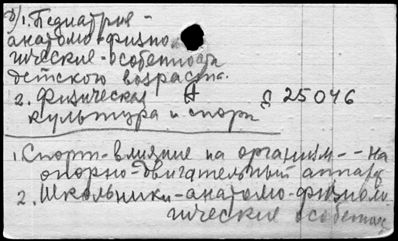 б) 1. Педиатрия -
анатомо-физио
гические-особенности
детского возраста.
2. Физическая А Д 25046
культура и спорт
1. Спорт-влияние на организм - - на
опорно-двигательный аппарат
2. Школьники-анатомо-физиоло
гические особеннос